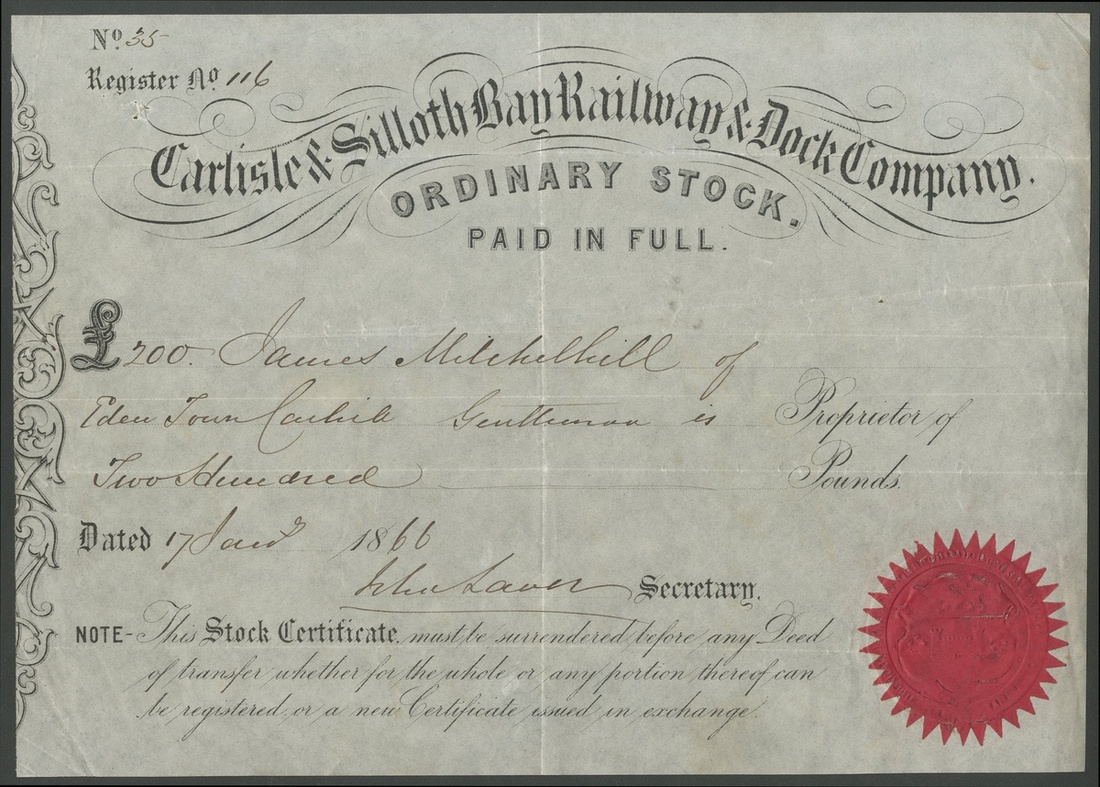 No. 35
Register No. 116
Carlisle & Silloth Bay Railway & Dock Company.
ORDINARY STOCK.
PAID IN FULL.
£200. James Mitchelhill of
Eden Town Carlisle Gentleman is Proprietor of
Two Hundred Pounds.
Dated 17 Jany 1866
John Secretary.
NOTE- This Stock Certificate, must be surrendered before any Deed
of transfer whether for the whole or any portion thereof can
be registered, or a new Certificate issued in exchange.